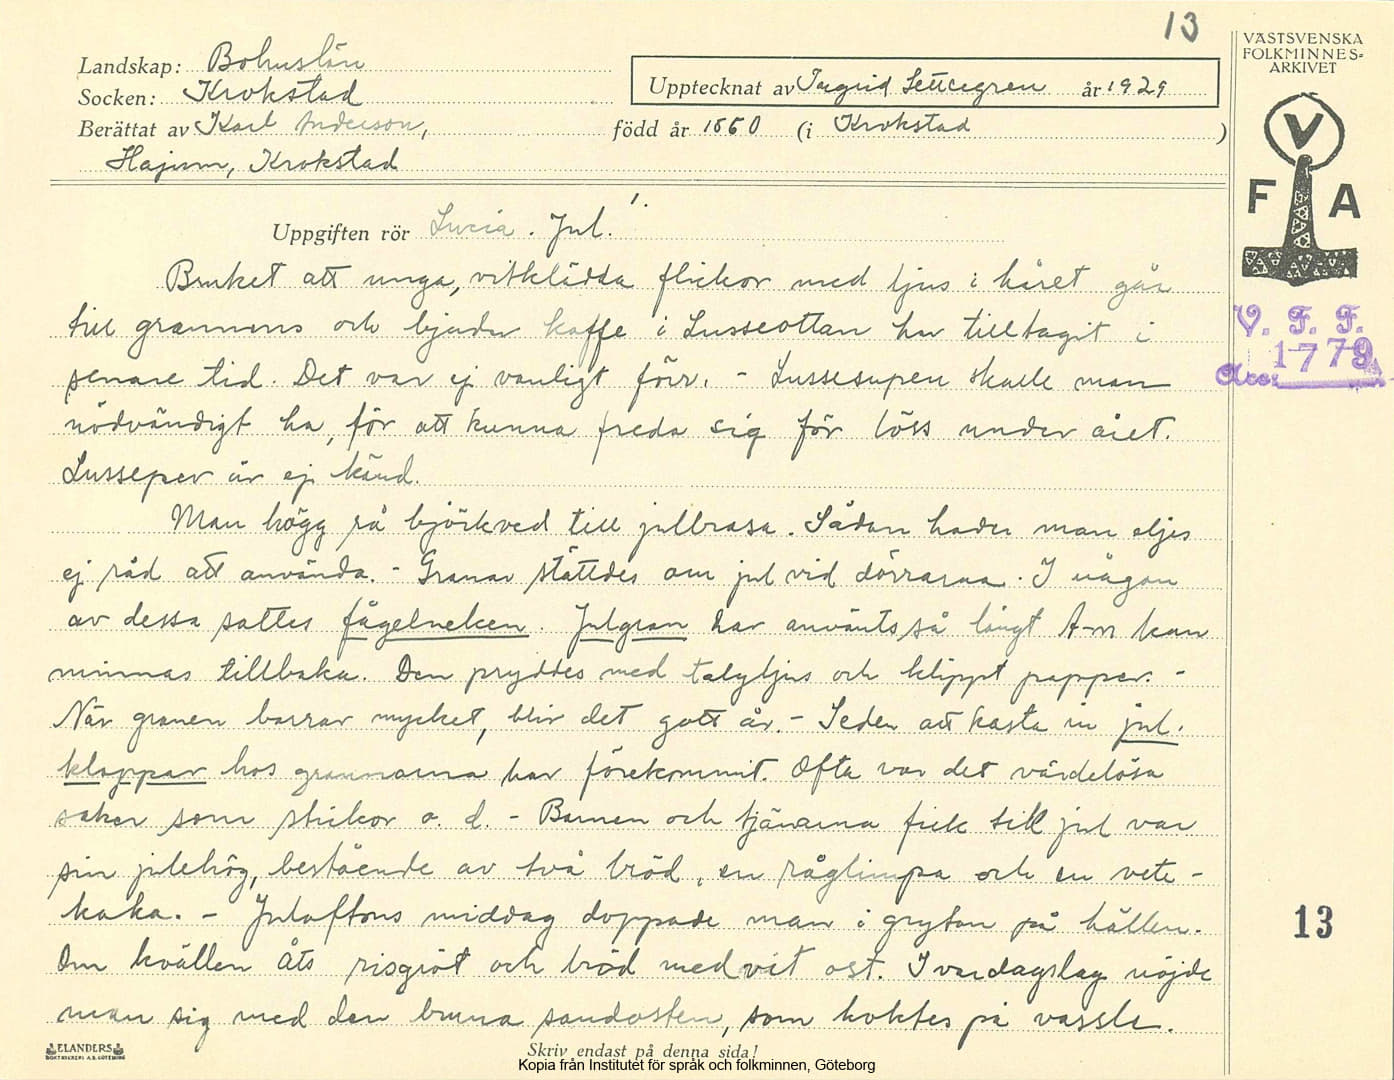 13
VÄSTSVENSKA
FOLKMINNES-
ARKIVET
Landskap: Bohuslän
Socken: Krokstad
Upptecknat av Ingrid år 1929
Berättat av Karl Anderson, född år 1860 (i Krokstad )
Hajum, Krokstad
V
F A
Uppgiften rör Lucia. Jul. 1.
Bruket att unga, vitklädda flickor med ljus i håret går
till grannens och bjuder kaffe i Lusseottan har tilltagit i
senare tid. Det var ej vanligt förr. - Lussesupen skulle man
nödvändigt ha, för att kunna freda sig för löss under året.
Lusseper är ej känd.
V. F. F.
Acc: 1779
Man högg rå björkved till julbrasa. Sådan hade man eljes
ej råd att använda. - Granar ställdes om jul vid dörrarna. I någon
av dessa sattes fågelneken. Julgran har använts så långt A-n kan
minnas tillbaka. Den pryddes med talgljus och klippt papper. -
När granen barrar mycket, blir det gott år. - Seden att kasta in jul-
klappar hos grannarna har förekommit. Ofta var det värdelösa
saker som stickor o. d. - Barnen och tjänarna fick till jul var
sin julehög, bestående av två bröd, en råglimpa och en vete-
kaka. - Julaftons middag doppade man i grytan på hällen.
Om kvällen åts risgröt och bröd med vit ost. I vardagslag nöjde
man sig med den bruna sandosten, som koktes på vassle.
13
ELANDERS
BOKTRYCKERI A.B. GÖTEBORG
Skriv endast på denna sida!
Kopia från Institutet för språk och folkminnen, Göteborg